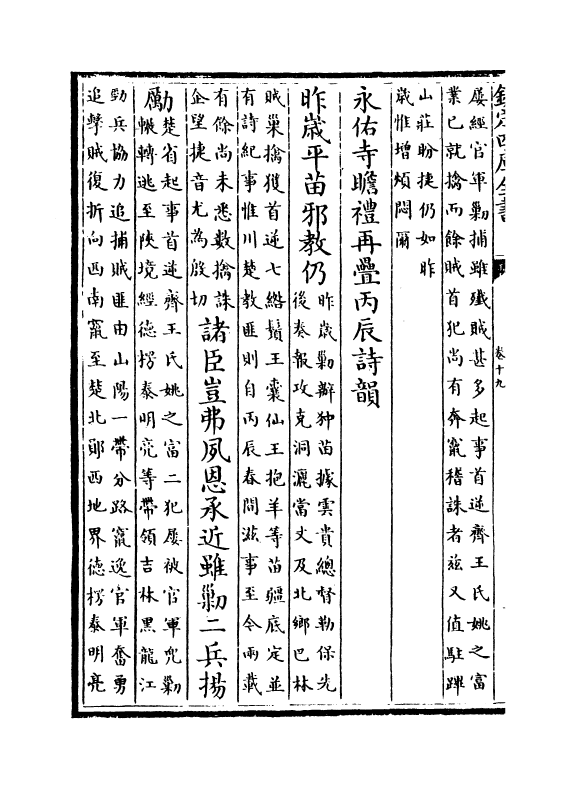 欽定四庫全書
卷十九
屢經官軍勦捕雖殲賊甚多起事首逆齊王氏姚之富
業已就擒而餘賊首犯尚有奔竄稽誅者茲又值駐蹕
山莊盼捷仍如昨
歲惟增煩悶爾
永佑寺瞻禮再疊丙辰詩韻
昨歲平苗邪教仍
昨歲勦辦狆苗據雲貴總督勒保先
後奏報攻克洞灑當丈及北鄉巴林
賊巢擒獲首逆七綹鬚王囊仙王抱羊等苗疆底定並
有詩紀事惟川楚教匪則自丙辰春間滋事至今兩載
有餘尚未悉數擒誅
企望捷音尤為殷切
諸臣豈弗夙恩承近雖勦二兵揚
勵
楚省起事首逆齊王氏姚之富二犯屢被官軍兜勦
輾轉逃至陜境經德楞泰明亮等帶領吉林黑龍江
勁兵協力追捕賊匪由山陽一帶分路竄逸官軍奮勇
追擊賊復折向西南竄至楚北鄖西地界德楞泰明亮